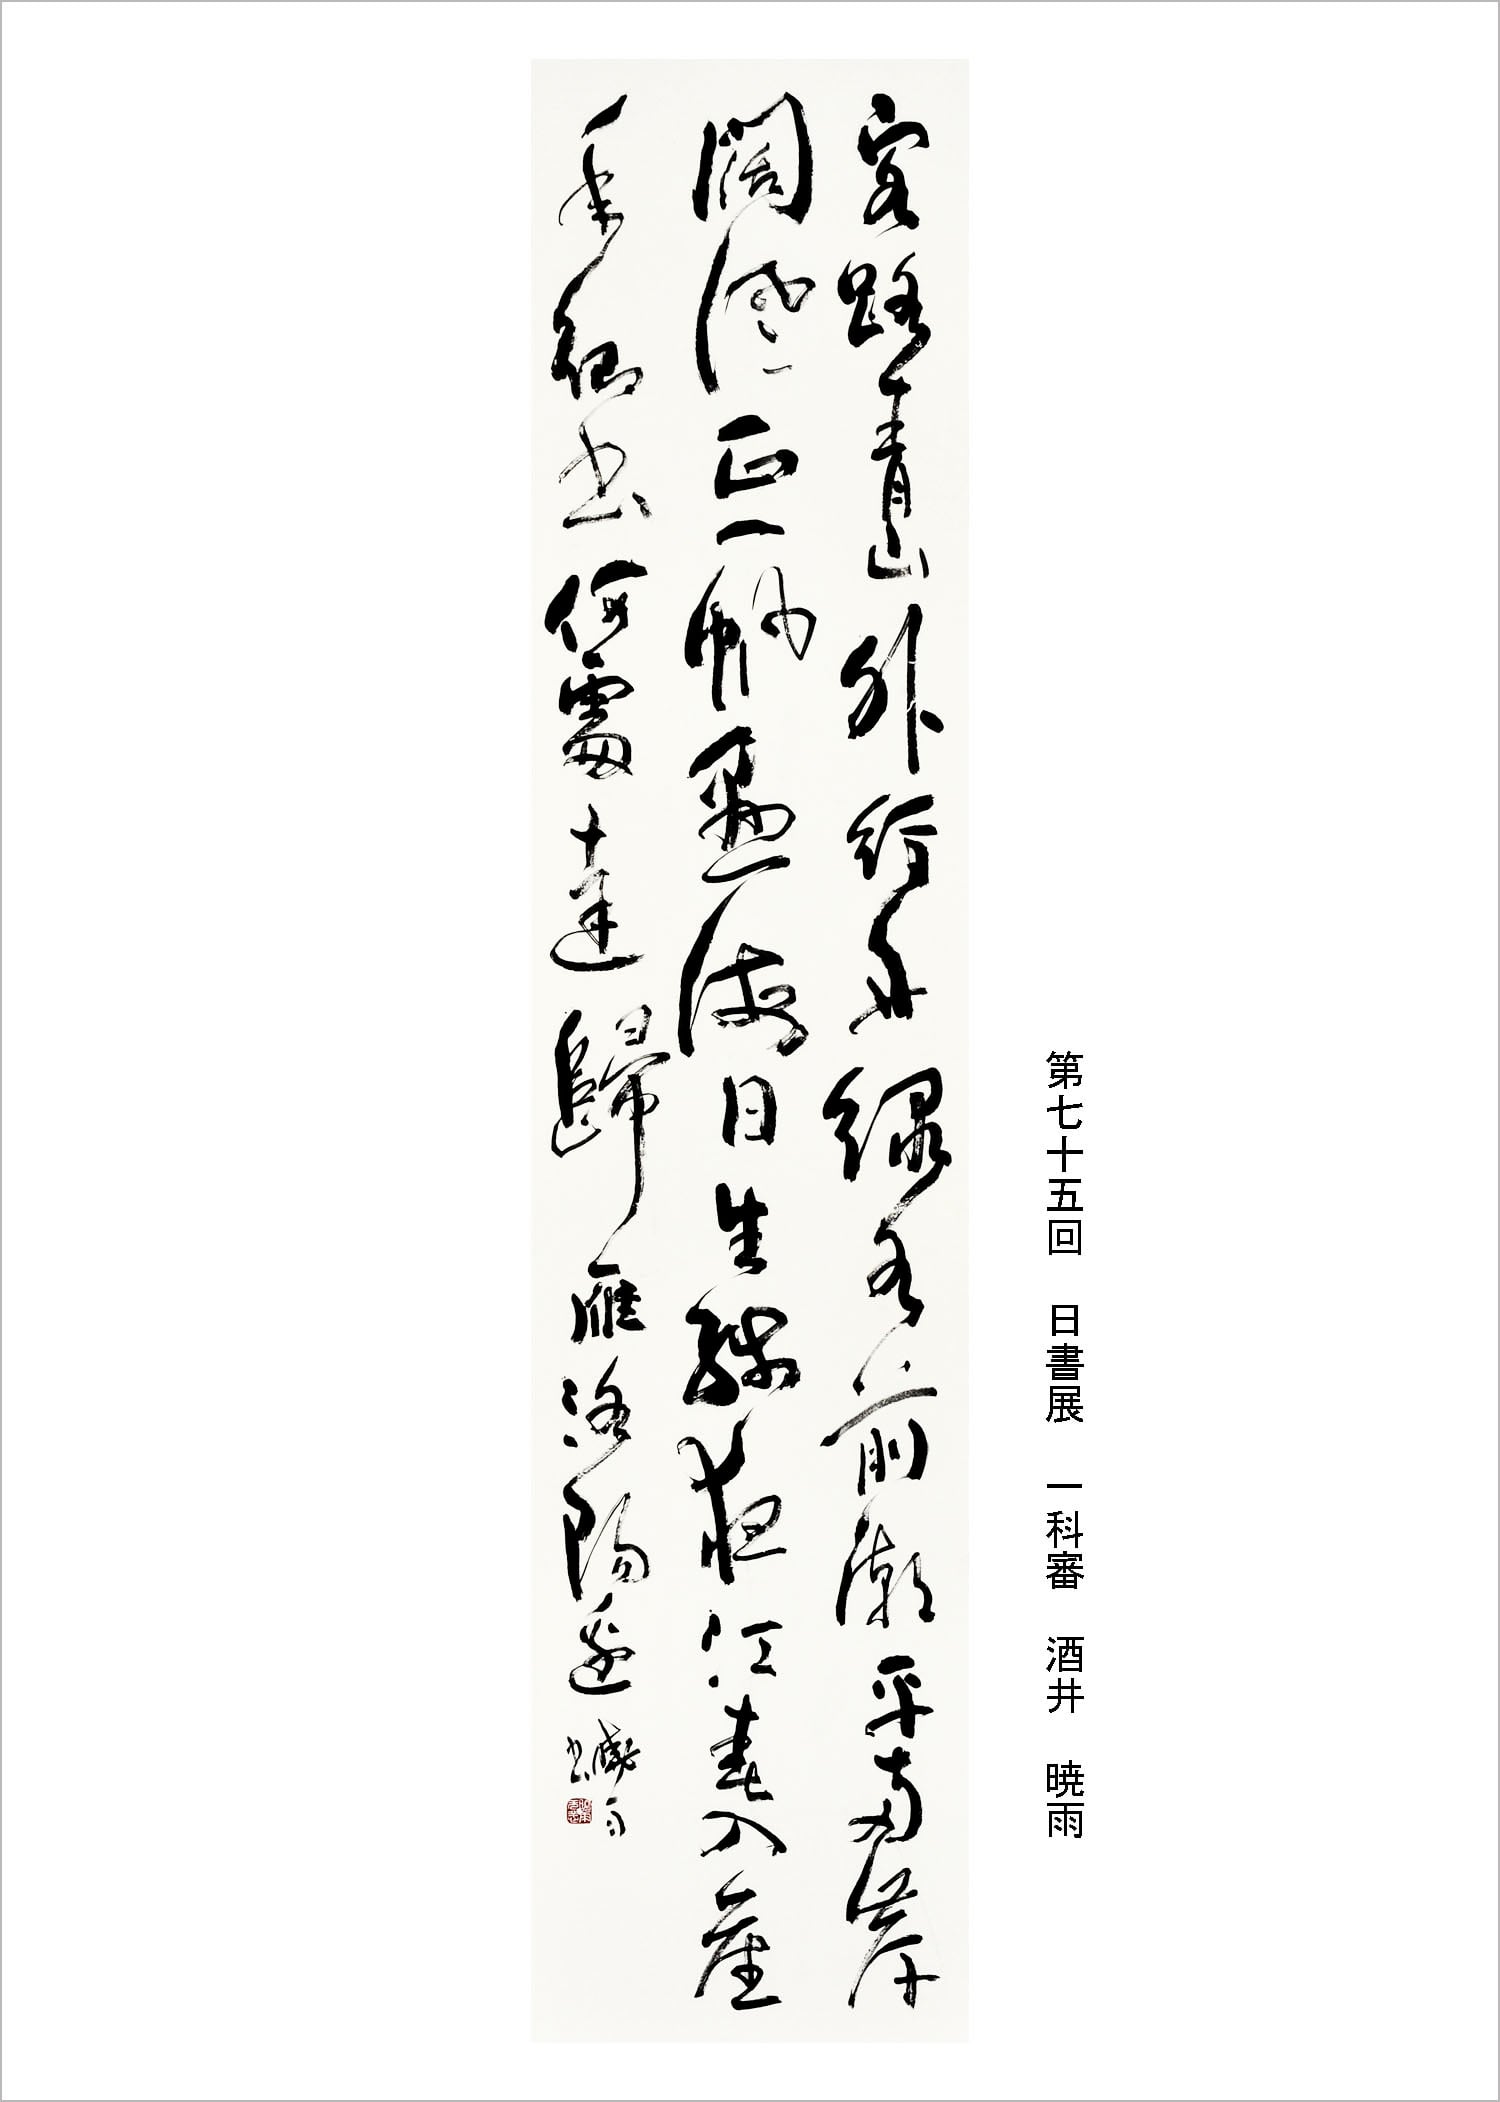 第七十五回 日書展 一科審 酒井 暁雨
客路青山外行舟綠水前潮平兩岸
闊風正一帆懸海日生殘夜江春入舊
年鄉書何處達歸雁洛陽邊 曉雨書